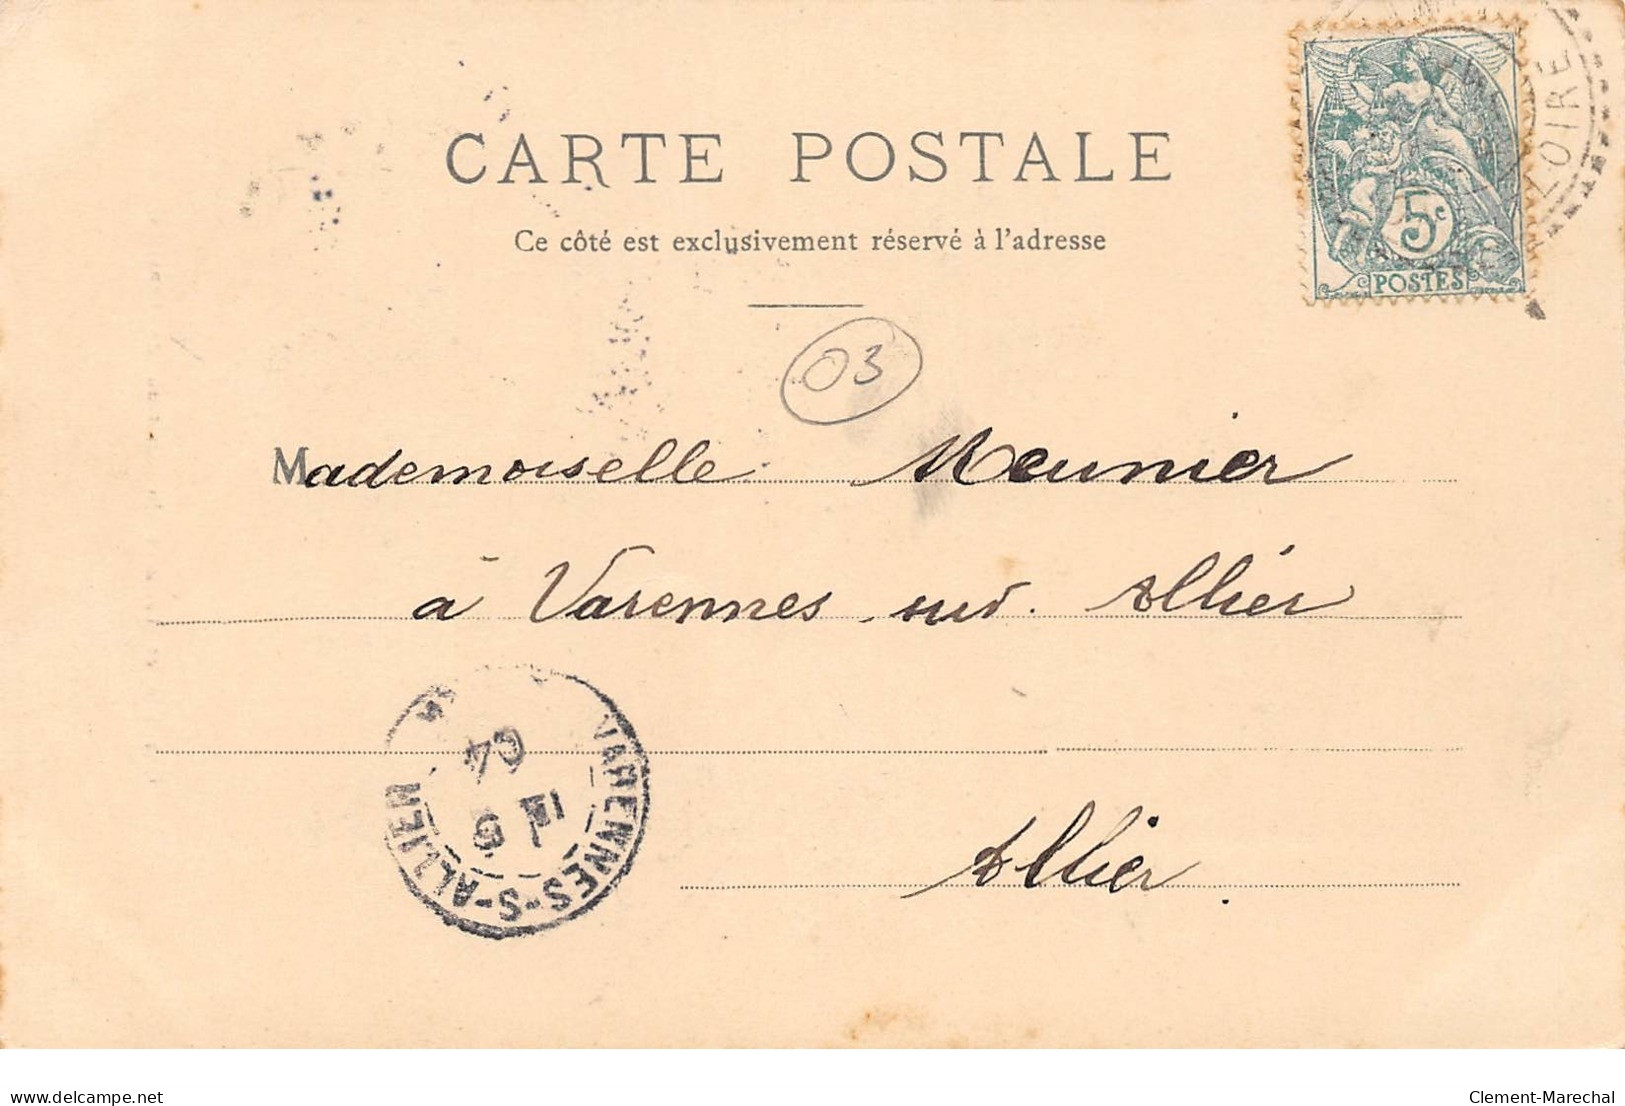 CARTE POSTALE
Ce côté est exclusivement réservé à l'adresse
5c
POSTES
LOIRE
03
Mademoiselle Meunier
à Varennes sur Allier
Allier.
VARENNES-S-ALLIER
04
delcampe.net
Clement-Marechal